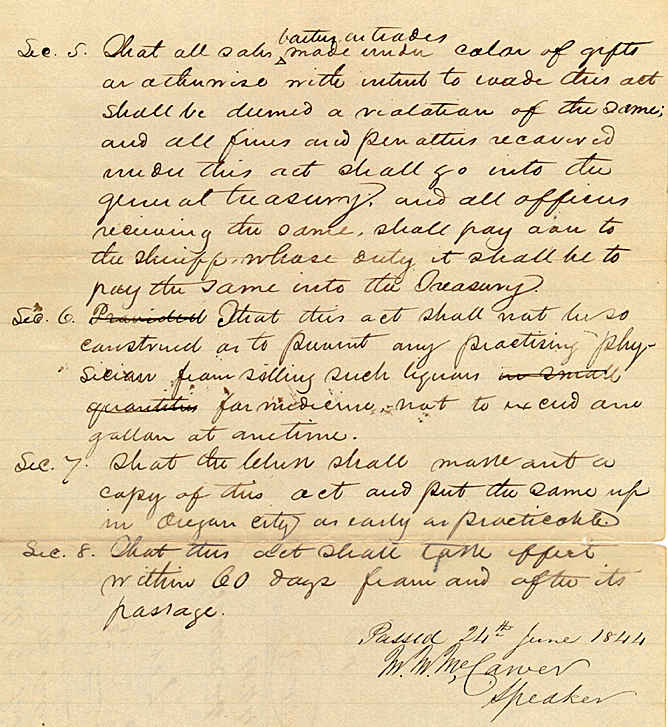 barter or trades
Sec. 5. That all sales ^ made under color of gifts
or otherwise with intent to evade this act
shall be deemed a violation of the same;
and all fines and penalties recovered
under this act shall go into the
general treasury, and all officers
receiving the same, shall pay over to
the sheriff whose duty it shall be to
pay the same into the Treasury.
Sec. 6. Provided That this act shall not be so
construed as to prevent any practising phy-
sician from selling such liquors in small
quantities for medicine, not to exceed one
gallon at one time.
Sec. 7. That the Clerk shall make out a
copy of this act and put the same up
in Oregon City as early as practicable
Sec. 8. That this act shall take effect
within 60 days from and after its
passage.
Passed 24th June 1844
M. M. McCarver
Speaker